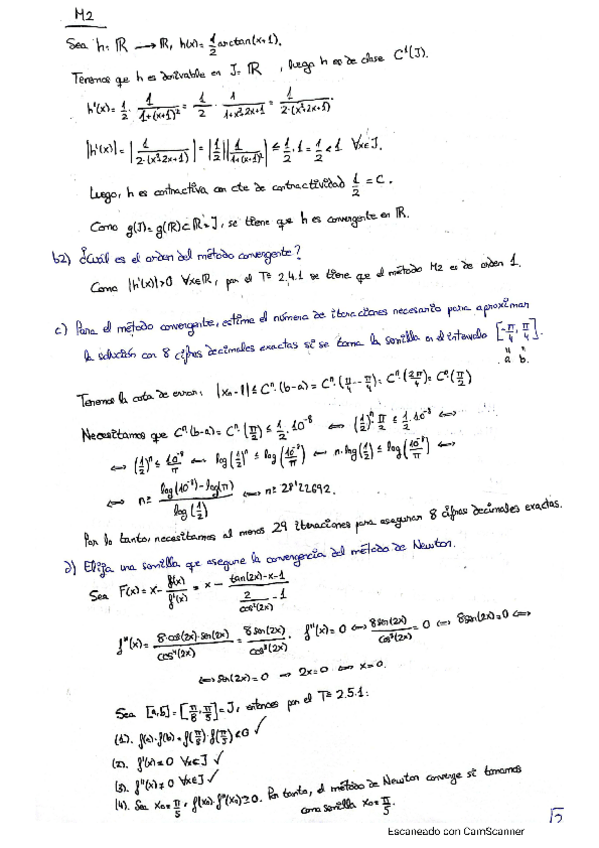 M2
Sea h: ℝ ⟶ ℝ, h(x) = 1/2 arctan(x+1).
Tenemos que h es derivable en J = ℝ, luego h es de clase C¹(J).
h'(x) = 1/2 · 1/(1+(x+1)²) = 1/2 · 1/(1+x²+2x+1) = 1/(2·(x²+2x+2)).
|h'(x)| = |1/(2·(x²+2x+2))| = |1/2||1/(1+(x+1)²)| ≤ 1/2·1 = 1/2 < 1 ∀x∈J.
Luego, h es contractiva con cte de contractividad 1/2 = C.
Como g(J) = g(ℝ) ⊂ ℝ = J, se tiene que h es convergente en ℝ.
b2) ¿Cuál es el orden del método convergente?
Como |h'(x)|>0 ∀x∈ℝ, por el Tª 2.4.1 se tiene que el método M2 es de orden 1.
c) Para el método convergente, estime el número de iteraciones necesario para aproximar
la solución con 8 cifras decimales exactas si se toma la semilla en el intervalo [-π/4, π/4].
a b.
Tenemos la cota de error: |xn - l| ≤ Cⁿ·(b-a) = Cⁿ·(π/4 - -π/4) = Cⁿ·(2π/4) = Cⁿ·(π/2)
Necesitamos que Cⁿ·(b-a) = Cⁿ·(π/2) ≤ 1/2·10⁻⁸ ⟺ (1/2)ⁿ·π/2 ≤ 1/2·10⁻⁸ ⟺
⟺ (1/2)ⁿ ≤ 10⁻⁸/π ⟺ log(1/2)ⁿ ≤ log(10⁻⁸/π) ⟺ n·log(1/2) ≤ log(10⁻⁸/π) ⟺
⟺ n ≥ (log(10⁻⁸)-log(π))/log(1/2) ⟺ n ≥ 28'22692.
Por lo tanto, necesitamos al menos 29 iteraciones para asegurar 8 cifras decimales exactas.
d) Elija una semilla que asegure la convergencia del método de Newton.
Sea F(x) = x - f(x)/f'(x) = x - (tan(2x)-x-1)/(2/cos²(2x) - 1)
f''(x) = 8·cos(2x)·sen(2x)/cos⁴(2x) = 8sen(2x)/cos³(2x). f''(x) = 0 ⟺ 8sen(2x)/cos³(2x) = 0 ⟺ 8sen(2x) = 0 ⟺
⟺ sen(2x) = 0 ⟹ 2x = 0 ⟺ x = 0.
Sea [a,b] = [π/8, π/5] = J, entonces por el Tª 2.5.1:
(1). f(a)·f(b) = f(π/8)·f(π/5) < 0 ✓
(2). f'(x) ≠ 0 ∀x∈J ✓
(3). f''(x) ≠ 0 ∀x∈J ✓
(4). Sea x₀ = π/5, f(x₀)·f''(x₀) ≥ 0. Por tanto, el método de Newton converge si tomamos
como semilla x₀ = π/5.
Escaneado con CamScanner